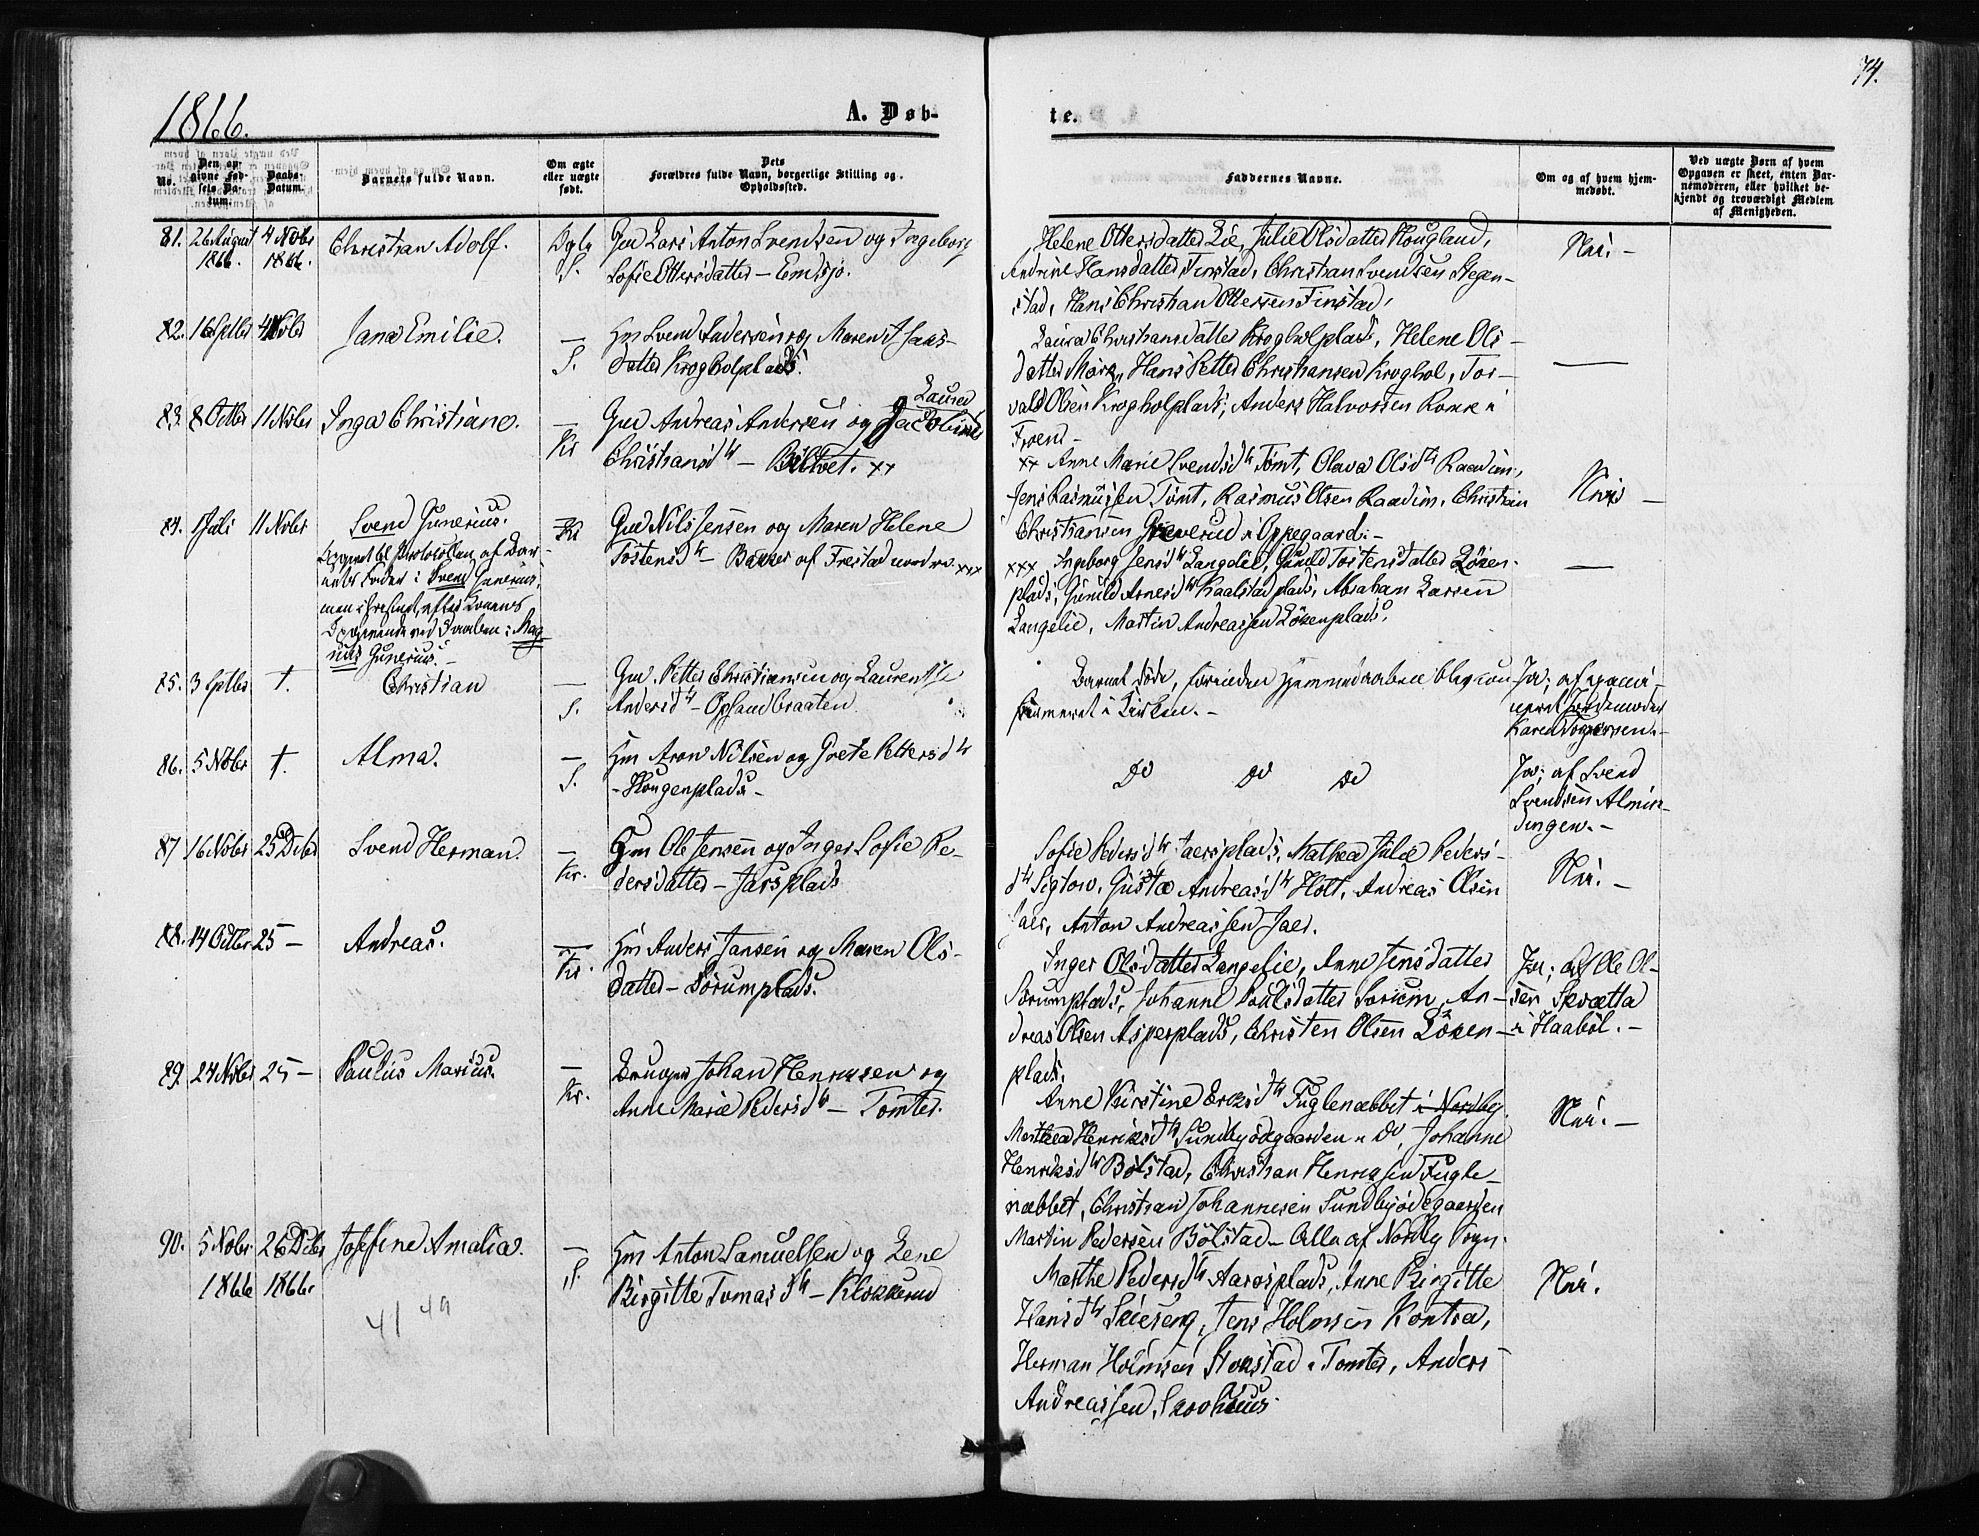 74.
1866.
A. Døb-
te.
No.
Den op-
givne Fød-
sels Da-
tum.
Daabs-
Datum.
Barnets fulde Navn.
Om ægte
eller uægte
født.
Dets
Forældres fulde Navn, borgerlige Stilling og
Opholdssted.
Faddernes Navne.
Om og af hvem hjem-
medøbt.
Ved uægte Børn af hvem
Opgaven er skeet, enten Bar-
nemoderen, eller hvilket be-
kjendt og troværdigt Medlem
af Menigheden.
81. 26 August 4 Novbr Christian Adolf.
1866. 1866.
S.
Lars Anton Svendsen og Ingeborg
Sofie Ottersdatter – Emdsjø.
Helene Ottersdatter Lie, Julie Olsdatter Hougland,
Andrine Hansdatter Finstad, Christian Svendsen Stegen-
stad, Hans Christian Ottersen Finstad.
Nei. –
82. 16 Sptbr 4 Novbr Jana Emilie. —
S.
Hm Svend Andersen og Maren Isaks-
datter Krogholplads.
Laura Christiansdatter Krogholplads, Helene Ols-
datter Mørk, Hans Petter Christiansen Kroghol, Tor-
vald Olsen Krogholplads, Anders Halvorsen Ramme i
Froen –
—
83. 8 Octbr 11 Novbr Inga Christiane. —
Kr
Laura
Gud Andreas Andersen og Jacobine
Christiansdtr – Bitvet. xx
xx Anne Marie Svendsdtr Tømt, Olava Olsdtr Raadim,
Jens Rasmussen Tømt, Rasmus Olsen Raadim, Christian
Christiansen Greverud i Oppegaard. –
Nei –
84. 1 Juli 11 Novbr Svend Gunerius.
Opgivet til Protokollen af Bar-
nets Fader: Svend Gunerius,
men i Ministerialbog, efter Konens
Opgivende ved Daaben: Mag-
nus Gunerius. –
Kr
Gud Nils Jensen og Maren Helene
Tostensdtr – Bakker af Frestad nordre. xxx
xxx Ingeborg Jensdtr Langelie, Gunild Tostensdatter Løken-
plads, Gunild Arnesdtr Kaalstadplads, Abraham Larsen
Langelie, Martin Andreassen Løkenplads.
—
85. 3 Sptbr †. Christian —
S.
Gud. Petter Christiansen og Laurentse
Andersdtr – Opsandbraaten.
Barnet døde, forinden Hjemmedaaben blev con-
firmeret i Kirken. –
Ja; af exami-
neret Jordemoder
Karen Torgersen. –
86. 5 Novbr †. Alma. —
S.
Hm Aron Nilsen og Grete Pettersdtr
– Hougenplads –
Do Do Do
Ja; af Svend
Svendsen Almin-
dingen. –
87 16 Novbr 25 Dcbr Svend Herman. —
Kr.
Hm Ole Jensen og Inger Sofie Pe-
dersdatter – Jarsplads
Sofie Pedersdtr Jaersplads, Mathea Julie Peders-
dtr Sigtow, Gusta Andreasdtr Holt, Andreas Olsen
Jaer, Anton Andreassen Jaer.
Nei. –
88. 14 Octbr 25 – Andreas. —
Kr.
Hm Anders Jansen og Maren Ols-
datter – Sørumplads.
Inger Olsdatter Langelie, Anne Jensdatter
Sørumplads, Johanne Poulsdatter Sørum, An-
dreas Olsen Asperplads, Christen Olsen Løken-
plads.
Ja; af Ole Ol-
sen Skvætta
i Haabøl. –
89. 24 Novbr 25 – Paulus Marius. —
Kr.
Bruger Johan Henriksen og
Anne Marie Pedersdtr – Tomter.
Anne Kirstine Eriksdtr Fuglenæbbet i Nordby
Marthea Henriksdtr Sundbyødegaarden i do, Johanne
Henriksdtr Bølstad, Christian Henriksen Fugle-
næbbet, Christian Johannesen Sundbyødegaarden
Martin Pedersen Bølstad – Alle af Nordby Sogn.
Nei. –
90. 5 Novbr 26 Dcbr Josefine Amalia. —
1866 1866.
S.
Hm Anton Samuelsen og Lene
Birgitte Tomasdtr – Klokkerud
Marthe Pedersdtr Aarosplads, Anne Birgitte
Hansdtr Skieseng, Jens Holmsen Kontra,
Herman Holmsen Stokstad i Tomter, Anders
Andreassen, Skovhuus.
Nei.
41 49